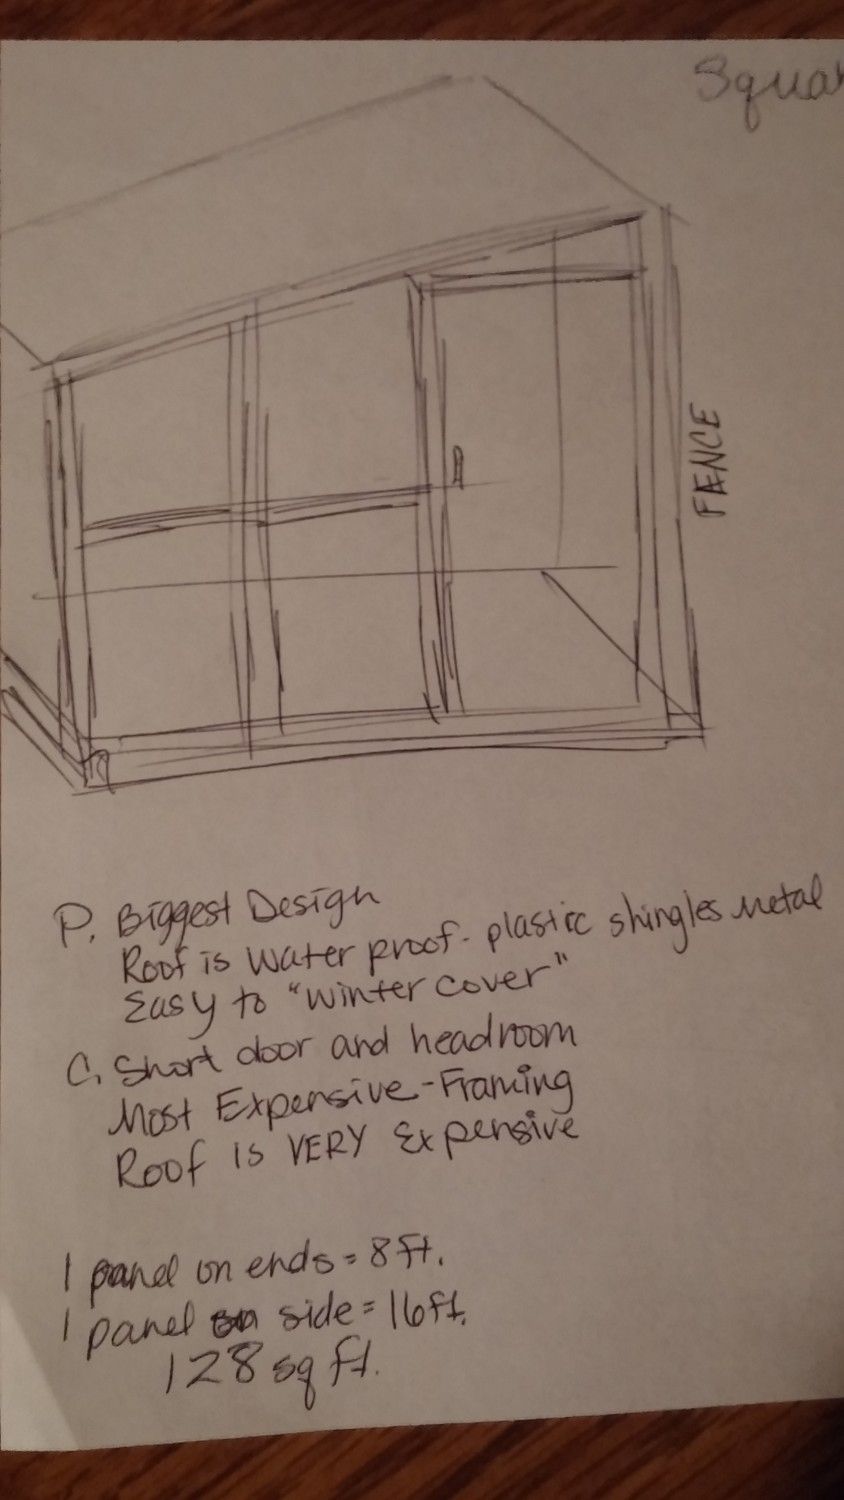 Squar
FENCE
P. Biggest Design
Roof is Water proof - plastic shingles Metal
Easy to "winter cover"
C. Short door and headroom
Most Expensive - Framing
Roof is VERY Expensive
1 panel on ends = 8 ft.
1 panel on side = 16 ft.
128 sq ft.